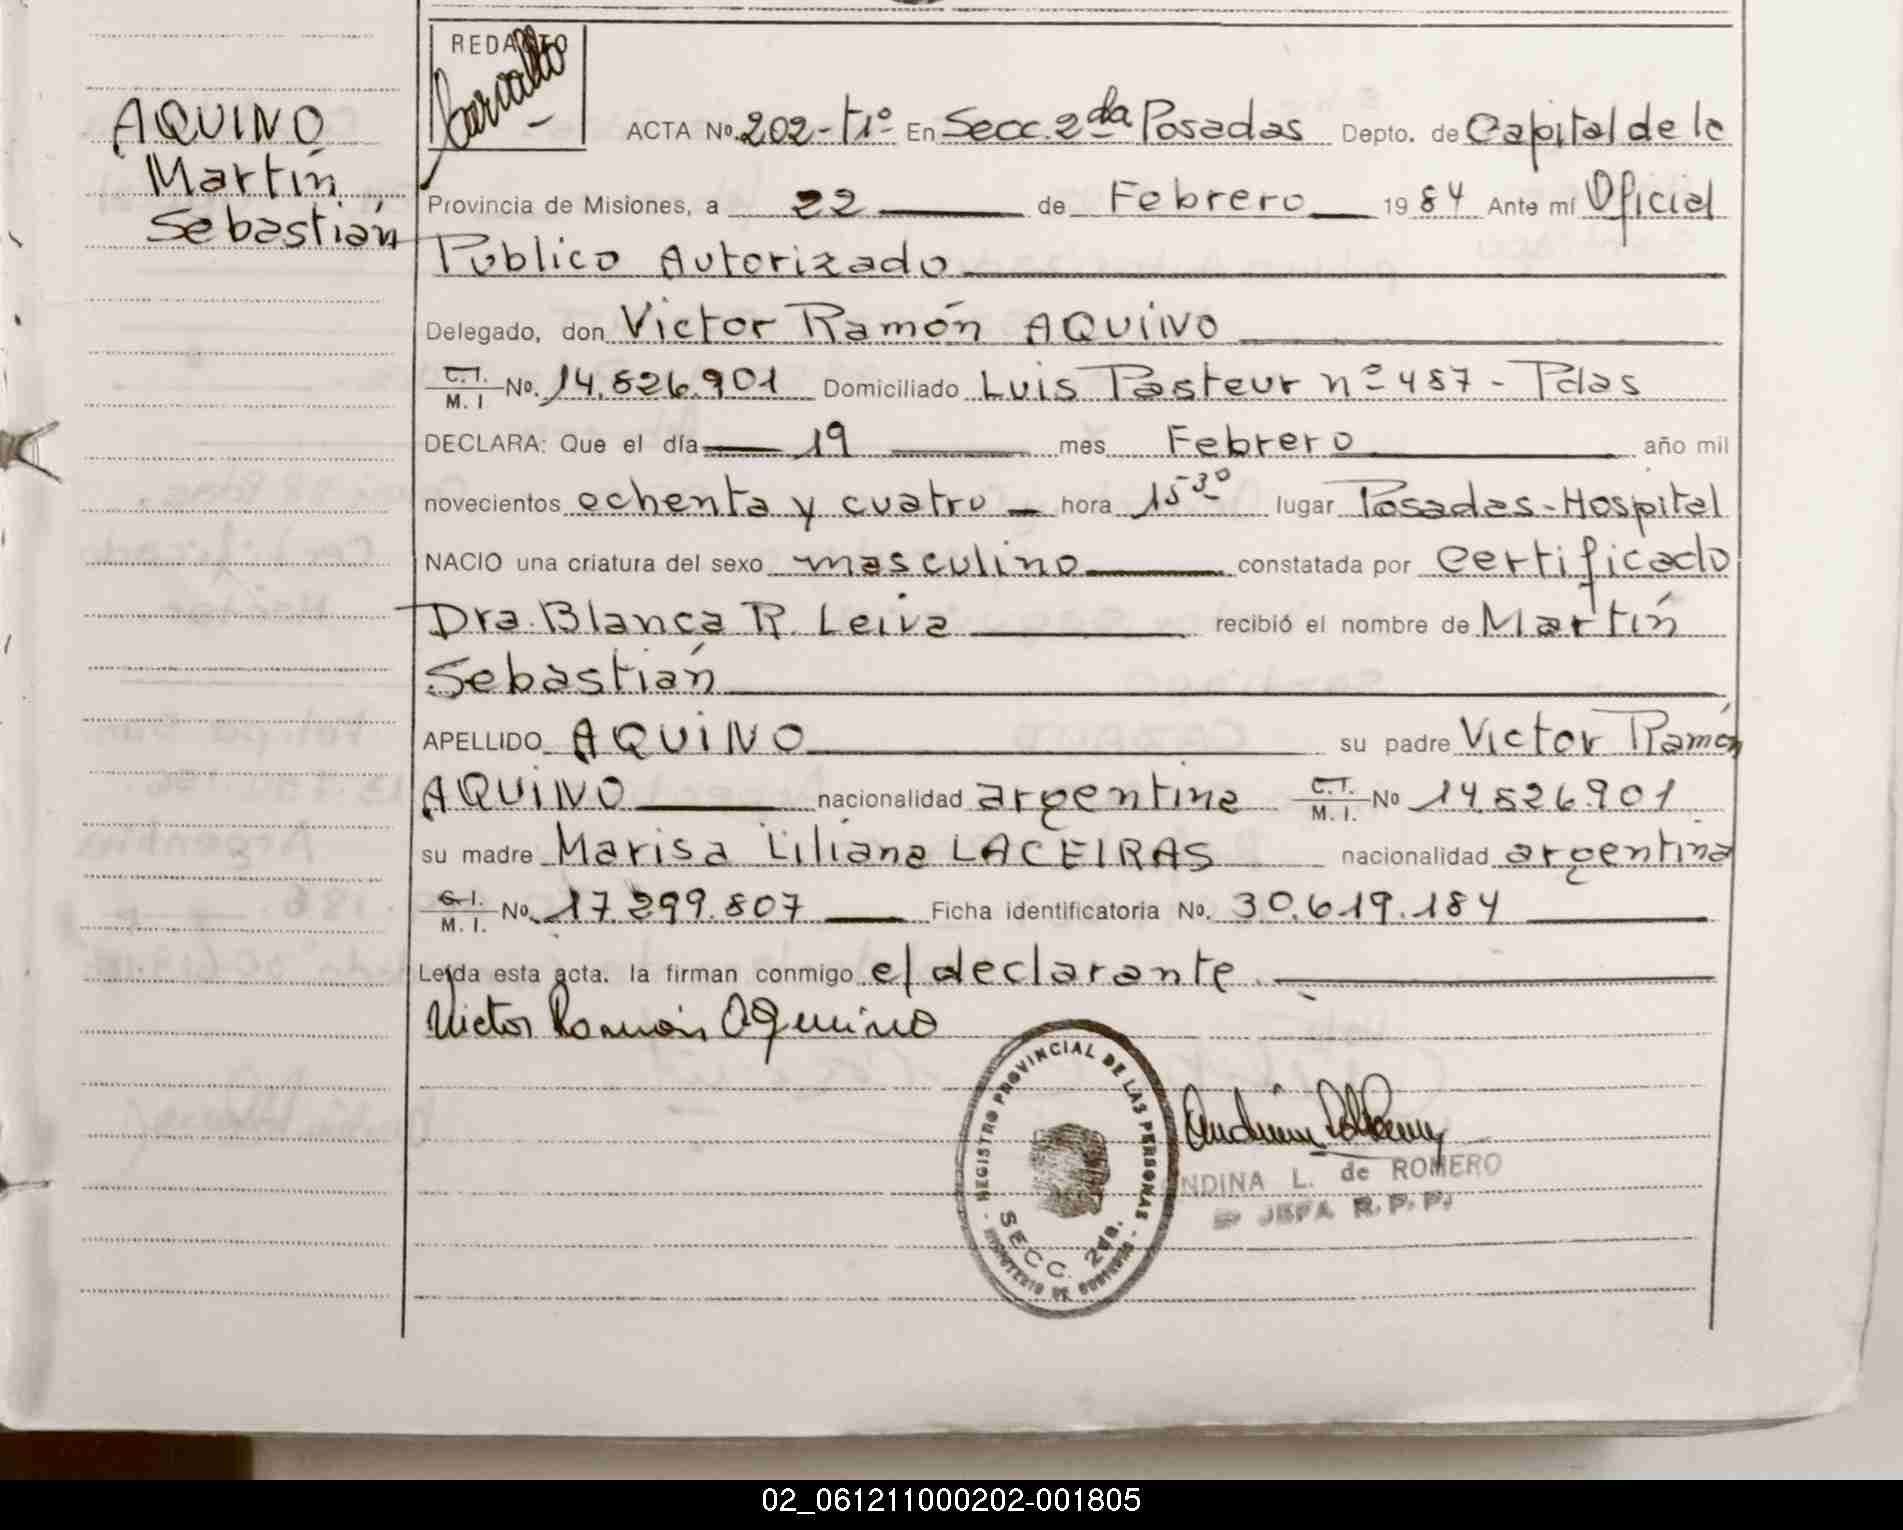 AQUINO
Martín
Sebastián
REDACTO
Carvallo
ACTA Nº. 202-T1º En Secc. 2da Posadas Depto. de Capital de la
Provincia de Misiones, a 22 de Febrero 1984 Ante mí Oficial
Público Autorizado
Delegado, don Victor Ramón AQUINO
C.I. M. I Nº. 14.826.901 Domiciliado Luis Pasteur nº 487 - Pdas
DECLARA: Que el día 19 mes Febrero año mil
novecientos ochenta y cuatro hora 15 30 lugar Posadas-Hospital
NACIO una criatura del sexo masculino constatada por Certificado
Dra. Blanca R. Leiva recibió el nombre de Martín
Sebastián
APELLIDO AQUINO su padre Victor Ramón
AQUINO nacionalidad argentina C.I. M. I. Nº 14.826.901
su madre Marisa Liliana LACEIRAS nacionalidad argentina
C.I. M. I. Nº. 17.299.807 Ficha identificatoria Nº. 30.619.184
Leída esta acta. la firman conmigo el declarante.
Victor Ramón Aquino
REGISTRO PROVINCIAL DE LAS PERSONAS
SECC. 2da.
MINISTERIO DE GOBIERNO
NDINA L. de ROMERO
JEFA R.P.P.
02_061211000202-001805